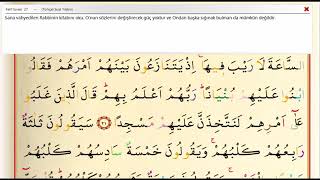 Sana vahyedilen Rabbinin kitabını oku. O'nun sözlerini değiştirecek güç yoktur ve O'ndan başka sığınak bulman da mümkün değildir.
السَّاعَةَ لَا رَيْبَ فِيهَا إِذْ يَتَنَازَعُونَ بَيْنَهُمْ أَمْرَهُمْ فَقَالُوا
ابْنُوا عَلَيْهِمْ بُنْيَانًا رَبُّهُمْ أَعْلَمُ بِهِمْ قَالَ الَّذِينَ غَلَبُوا
عَلَى أَمْرِهِمْ لَنَتَّخِذَنَّ عَلَيْهِمْ مَسْجِدًا ٢١ سَيَقُولُونَ ثَلَثَةٌ
رَابِعُهُمْ كَلْبُهُمْ وَيَقُولُونَ خَمْسَةٌ سَادِسُهُمْ كَلْبُهُمْ